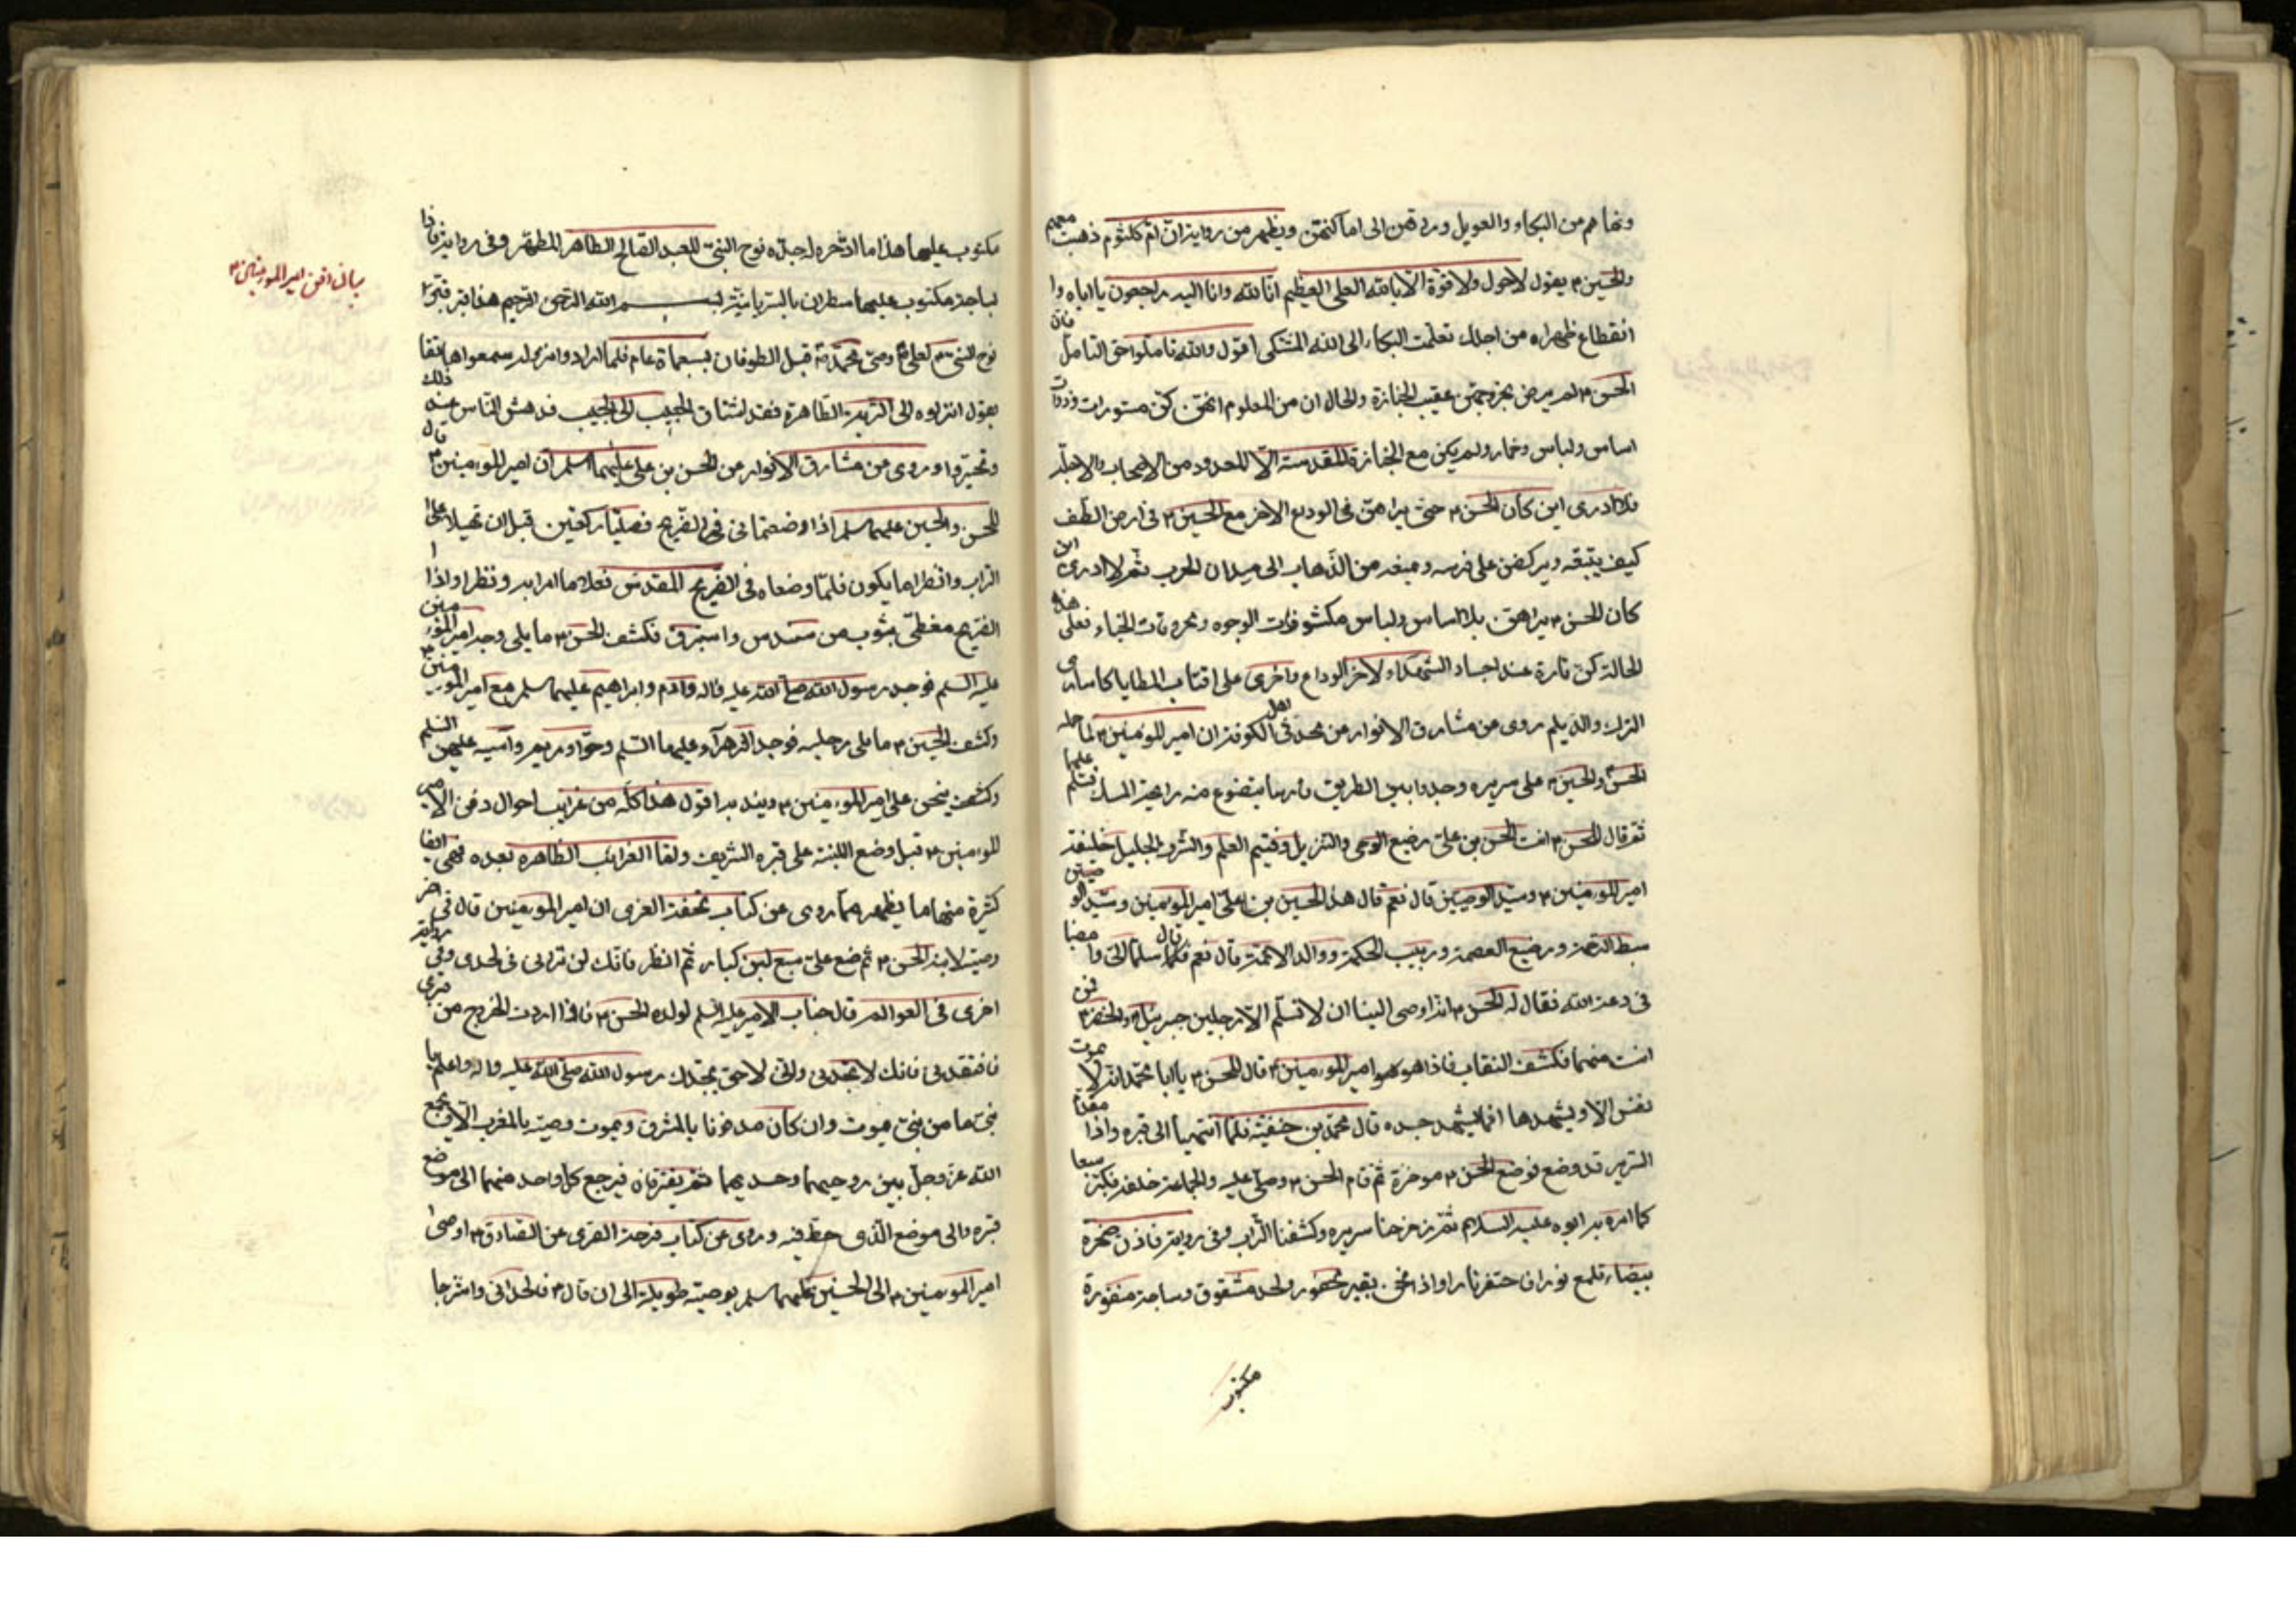 ونهاهم من البكاء والعويل وردهن الى اماكنهن ويظهر من رواية ان ام كلثوم ذهبت معهم
والحسين ؏ يقول لا حول ولا قوة الا بالله العلى العظيم انا لله وانا اليه راجعون يا اباه وا
انقطاع ظهراه من اجلك تعلمت البكاء الى الله المشتكى اقول والله تاملوا حق التامل فان
الحسن ؏ لم يرض بخروجهن عقيب الجنازة والحال ان من المعلوم انهن كن مستورات وذوات
اساس ولباس وخمار ولم يكن مع الجنازة المقدسة الا المعدود من الاصحاب والاجلة
فلا ادرى اين كان الحسن ؏ حتى يراهن فى الوداع الاخر مع الحسين ؏ فى ارض الطف
كيف يركضن على فرسه ومنعه من الذهاب الى ميدان الحرب ثم لا ادرى اين
كان الحسن ؏ يراهن بلا اساس ولباس مكشوفات الوجوه ومحروقات الخباء فعلى هذه
الحالة كن تارة عند اجساد الشهداء لاخر الوداع واخرى على اقتاب المطايا كاسارى
الترك والديلم روى عن مشارق الانوار عن محدثى اهل الكوفة ان امير المؤمنين ؏ لما حمله
الحسن والحسين ؏ على سريره وجدوا بين الطريق فارسا يتضوع منه رايحة المسك فسلم عليهما
ثم قال للحسن ؏ انت الحسن بن على رضيع الوحى والتنزيل وفطيم العلم والشرف الجليل خليفة
امير المؤمنين ؏ وسيد الوصيين قال نعم قال هذا الحسين بن على امير المؤمنين وسيد الوصيين
سبط الرحمة ورضيع العصمة وربيب الحكمة ووالد الائمة قال نعم قال سلماه الى وامضيا
فى دعة الله فقال له الحسن ؏ انه اوصى الينا ان لا نسلم الا رجلين جبرئيل والخضر ؏ فمن
انت منهما فكشف النقاب فاذا هو امير المؤمنين ؏ قال للحسن ؏ يا ابا محمد انه لا يموت
نفس الا ويشهدها افما يشهد جسده قال محمد بن حنفية فلما انتهينا الى قبره واذا مقدم
السرير قد وضع فوضع الحسن ؏ موخره ثم قام الحسن ؏ وصلى عليه والجماعة خلفه فكبر سبعا
كما امره به ابوه عليه السلام ثم زحزحنا سريره وكشفنا التراب وفى رواية فاذن صخرة
بيضاء تلمع نورا فاحتفرنا واذا نحن بقبر محفور ولحد مشقوق وساجة منقورة
مكتوب
مكتوب عليها هذا ما ادخره له جده نوح النبى للعبد الصالح الطاهر المطهر وفى رواية فاذا
بساجة مكتوب عليها سطران بالسريانية بسم الله الرحمن الرحيم هذا قبر قبره
نوح النبى ؏ لعلى ؏ وصى محمد ص قبل الطوفان بسبعماة عام فلما ارادوا نزوله سمعوا هاتفا
يقول انزلوه الى التربة الطاهرة فقد اشتاق الحبيب الى الحبيب فدهش الناس عند ذلك
وتحيروا وروى عن مشارق الانوار عن الحسن بن على عليهما السلم ان امير المؤمنين ؏ قال
للحسن والحسين عليهما سلم اذا وضعتمانى فى الضريح فصليا ركعتين قبل ان تهيلا على
التراب وانظرا ما يكون فلما وضعاه فى الضريح المقدس فعلا ما امرا به ونظرا واذا
الضريح مغطى بثوب من سندس واستبرق فكشف الحسن ؏ ما يلى وجه امير المؤمنين
عليه السلم فوجد رسول الله صلى الله عليه واله وادم وابراهيم عليهم سلم مع امير المؤمنين ؏
وكشف الحسين ؏ ما يلى رجليه فوجد الزهراء عليها السلم وحوا ومريم واسيه عليهن السلم
ينحن على امير المؤمنين ؏ ويندبه اقول هذا كله من غرايب احوال دفن الامير
المؤمنين ؏ قبل وضع اللبنة على قبره الشريف واما الغرائب الظاهرة بعده فهى ايضا
كثيرة منها ما يظهر مما روى عن كتاب فرحة الغرى ان امير المؤمنين قال فى اخر
وصيته لابنه الحسن ؏ ثم ضع على سبع لبن كبار ثم انظر فانك لن ترانى فى لحدى وفى رواية
اخرى فى العوالم قال جناب الامير عليه السلم لولده الحسن ؏ فاذا اردت الخروج من قبرى
فافتقدنى فانك لا تجدنى وانى لاحق بجدك رسول الله صلى الله عليه واله واعلم يا
بنى ما من نبى يموت وان كان مدفونا بالمشرق ويموت وصيه بالمغرب الا يجمع
الله عز وجل بين روحيهما وجسديهما ثم يفترقان فيرجع كل واحد منهما الى موضع
قبره والى موضع الذى حط فيه وروى عن كتاب فرحة الغرى عن الصادق ؏ اوصى
امير المؤمنين ؏ الى الحسنين عليهما سلم بوصية طويلة الى ان قال ؏ فالحدانى واشرجا
بيان دفن امير المؤمنين ؏